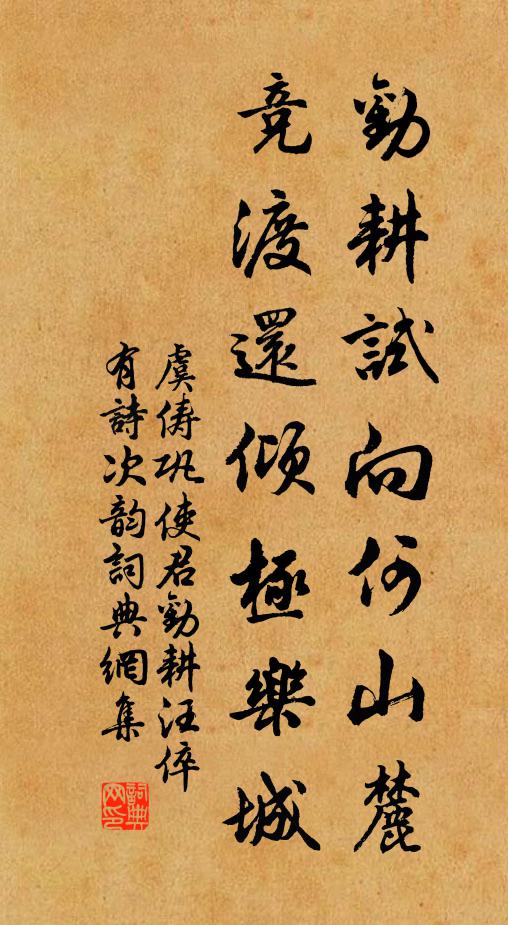 勸耕試向何山麓
竞渡還傾極樂城
虞儔巩使君勸耕汪倅
有詩次韵詞典網集
詞典网印